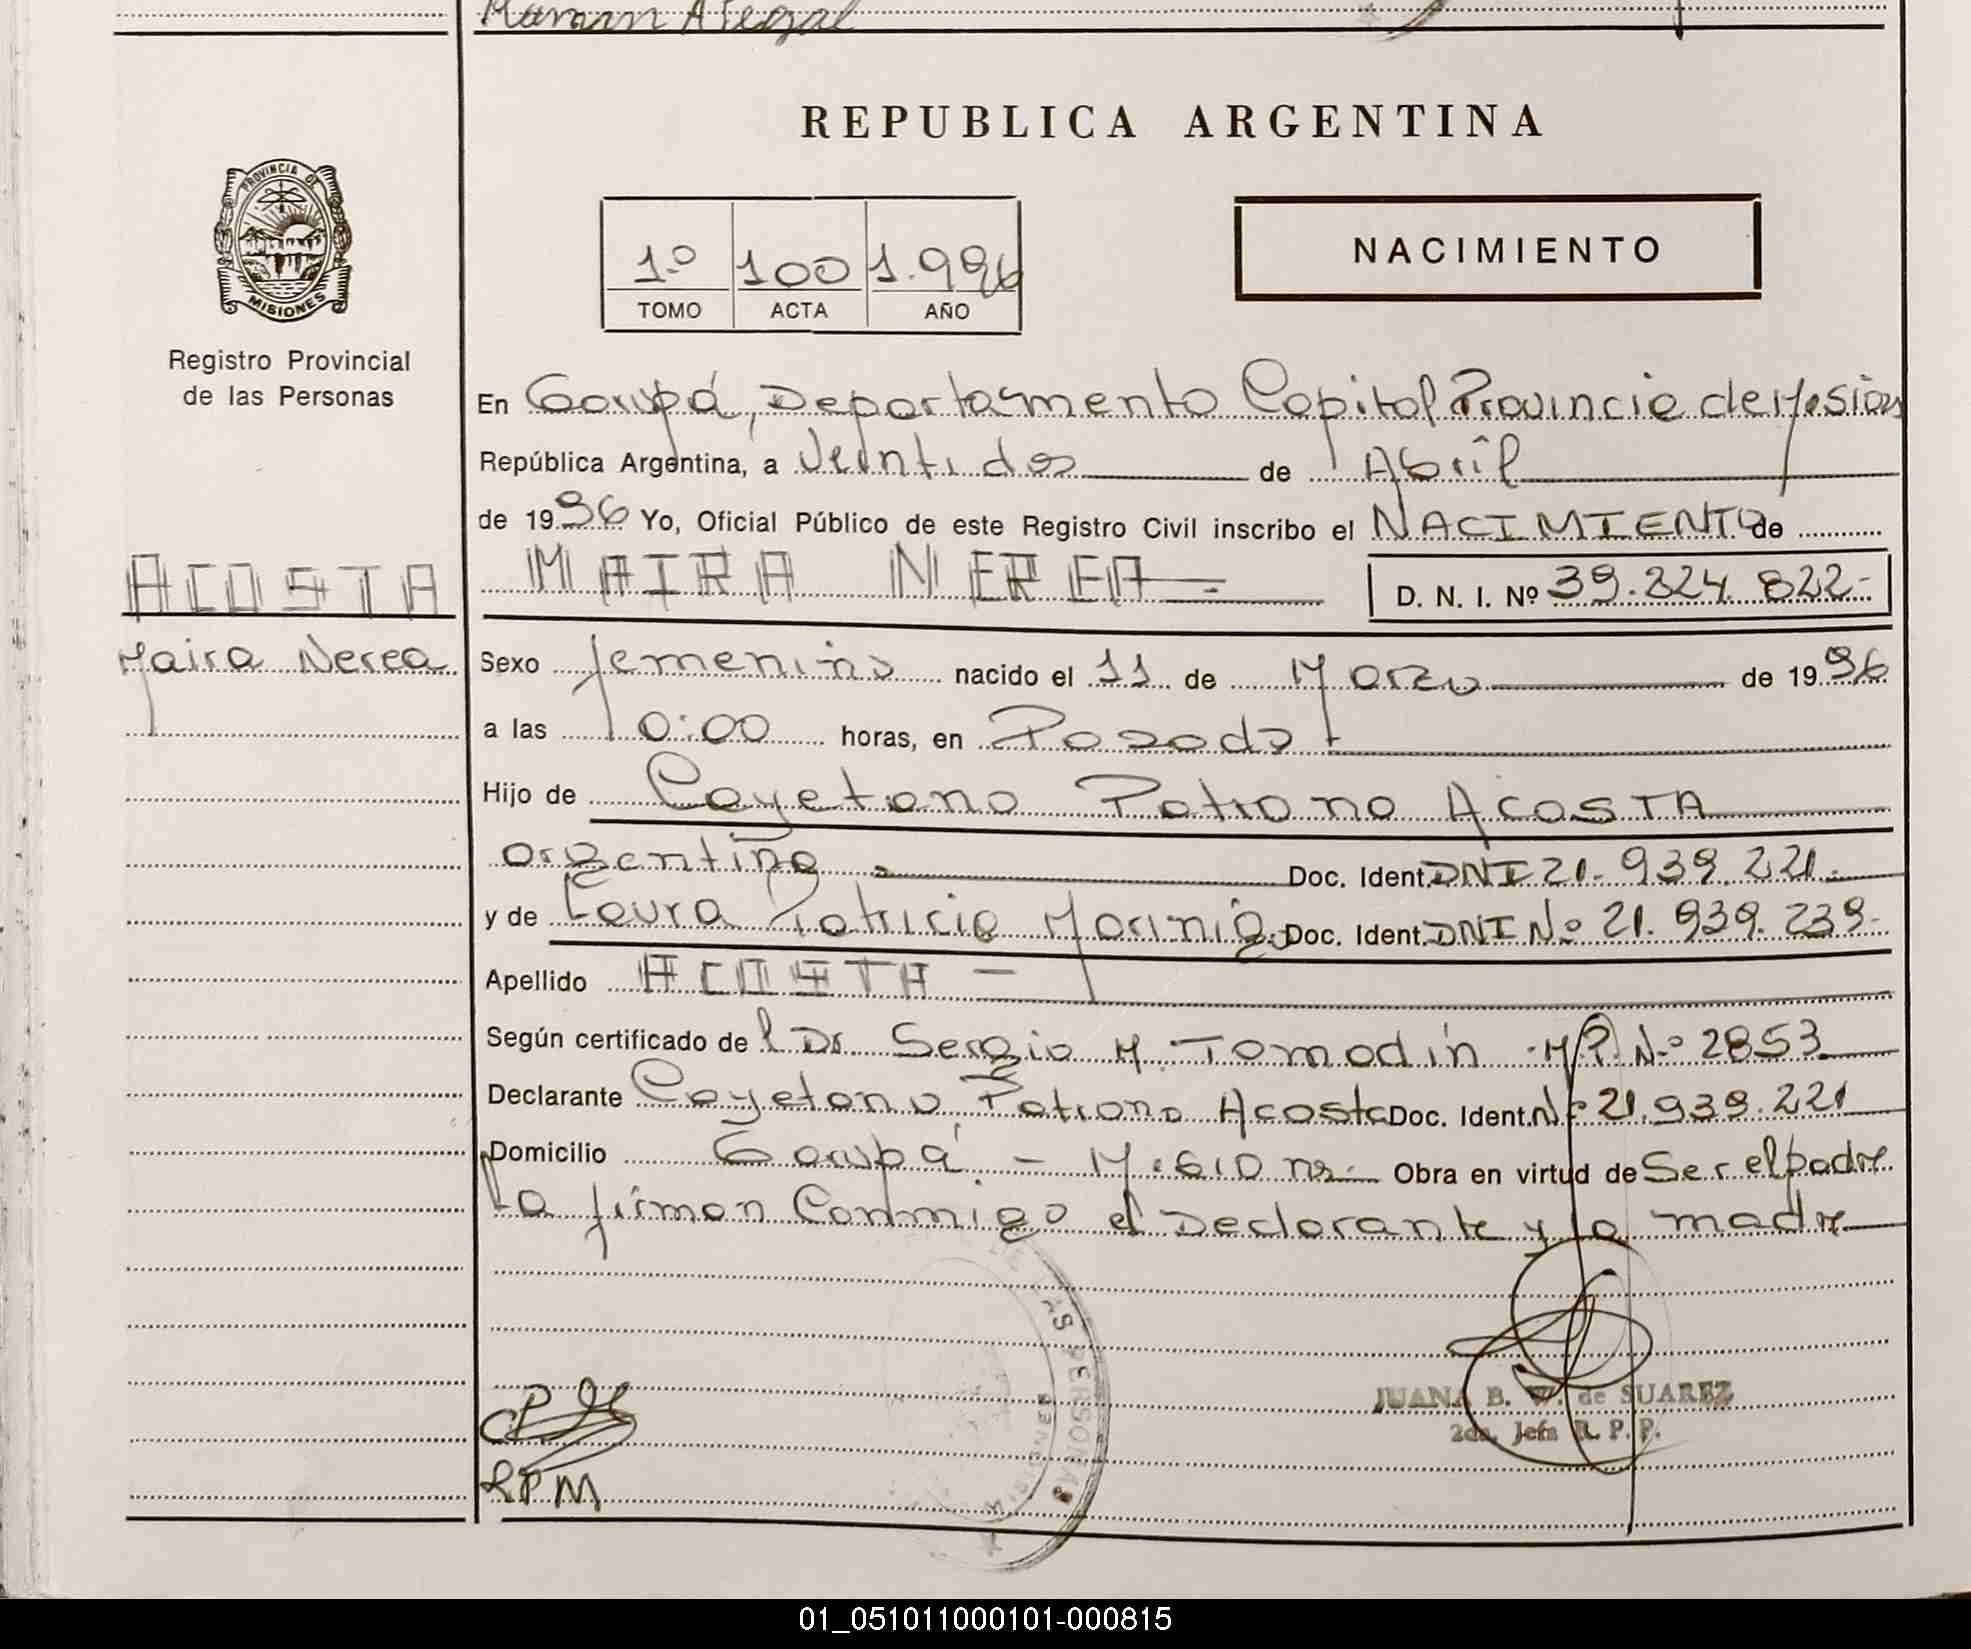 REPUBLICA ARGENTINA
PROVINCIA DE
MISIONES
Registro Provincial
de las Personas
1º 100 1.996
TOMO ACTA AÑO
NACIMIENTO
En Garupá, Departamento Capital Provincia de Misiones
República Argentina, a Veintidos de Abril
de 1996 Yo, Oficial Público de este Registro Civil inscribo el NACIMIENTO de
ACOSTA
Maira Nerea
MAIRA NEREA D. N. I. Nº 39.224.822-
Sexo femenino nacido el 11 de Marzo de 1996
a las 10:00 horas, en Posadas
Hijo de Cayetano Patrono ACOSTA
argentino Doc. Ident. DNI 21.939.221.
y de Laura Patricia Doc. Ident. DNI Nº 21.939.239-
Apellido ACOSTA -
Según certificado de l Dr. Sergio M. Tomadín M.P. Nº 2853
Declarante Cayetano Patrono Acosta Doc. Ident. Nº 21.939.221
Domicilio Garupá - Misiones Obra en virtud de Ser el padre
La firman Conmigo el Declarante y la madre
LAS PERSONAS
JUANA B. W. de SUAREZ
2da. Jefa R. P. P.
LPM
01_051011000101-000815